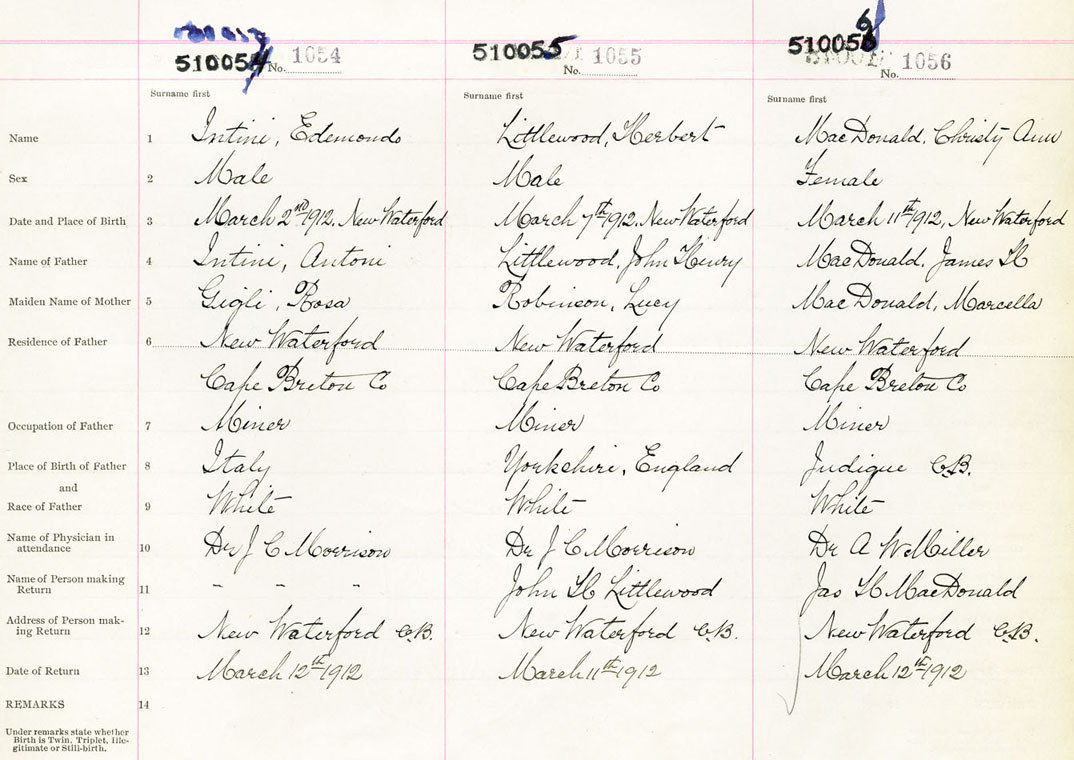 510054 No. 1054 510055 No. 1055 510056 No. 1056
Surname first Surname first Surname first
Name 1 Intini, Edemondo Littlewood, Herbert MacDonald, Christy Ann
Sex 2 Male Male Female
Date and Place of Birth 3 March 2nd 1912, New Waterford March 7th 1912, New Waterford March 11th 1912, New Waterford
Name of Father 4 Intini, Antoni Littlewood, John Henry MacDonald, James H
Maiden Name of Mother 5 Gigli, Rosa Robinson, Lucy MacDonald, Marcella
Residence of Father 6 New Waterford New Waterford New Waterford
Cape Breton Co Cape Breton Co Cape Breton Co
Occupation of Father 7 Miner Miner Miner
Place of Birth of Father 8 Italy Yorkshire, England Judique C.B.
and
Race of Father 9 White White White
Name of Physician in
attendance 10 Dr J C Morrison Dr J C Morrison Dr A W Miller
Name of Person making
Return 11 " " " John H Littlewood Jas H MacDonald
Address of Person mak-
ing Return 12 New Waterford C.B. New Waterford C.B. New Waterford C.B.
Date of Return 13 March 12th 1912 March 11th 1912 March 12th 1912
REMARKS 14
Under remarks state whether
Birth is Twin, Triplet, Ille-
gitimate or Still-birth.